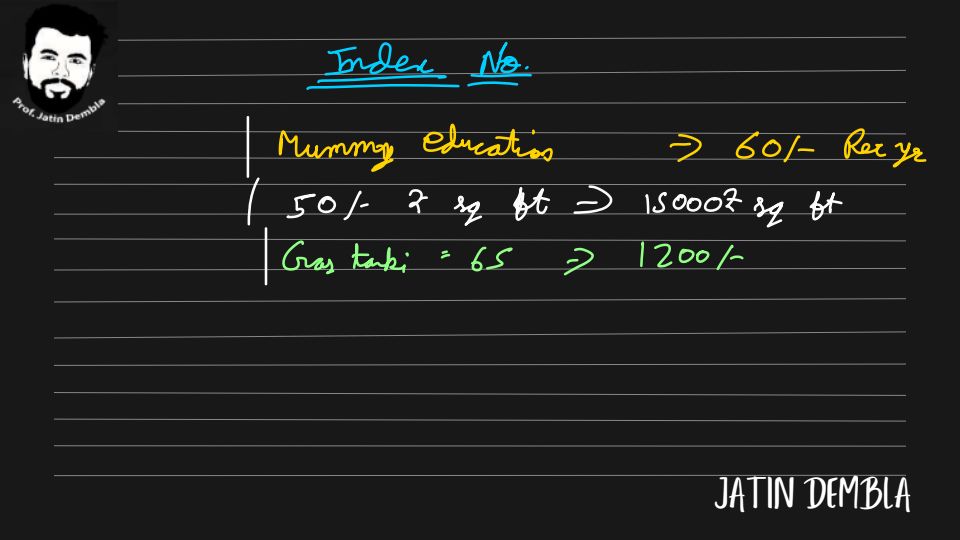 Prof. Jatin Dembla
Index No.
Mummy education => 60/- Per yr
50/- ₹ sq ft => 15000₹ sq ft
Gas tanki = 65 => 1200/-
JATIN DEMBLA